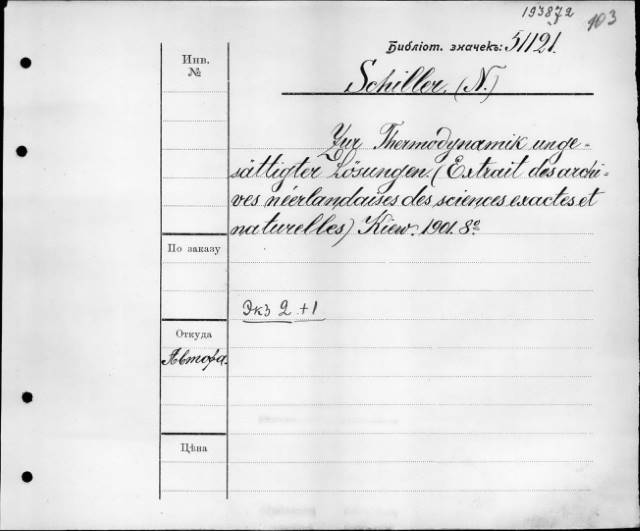 193872
103
Библіот. значекъ: 51121.
Инв.
№
Schiller. (N.)
Zur Thermodynamik unge-
sättigter Lösungen. (Extrait des archi-
ves néerlandaises des sciences exactes et
naturelles) Kiew. 1901. 8º
По заказу
Экз 2 + 1
Откуда
Автора.
Цѣна